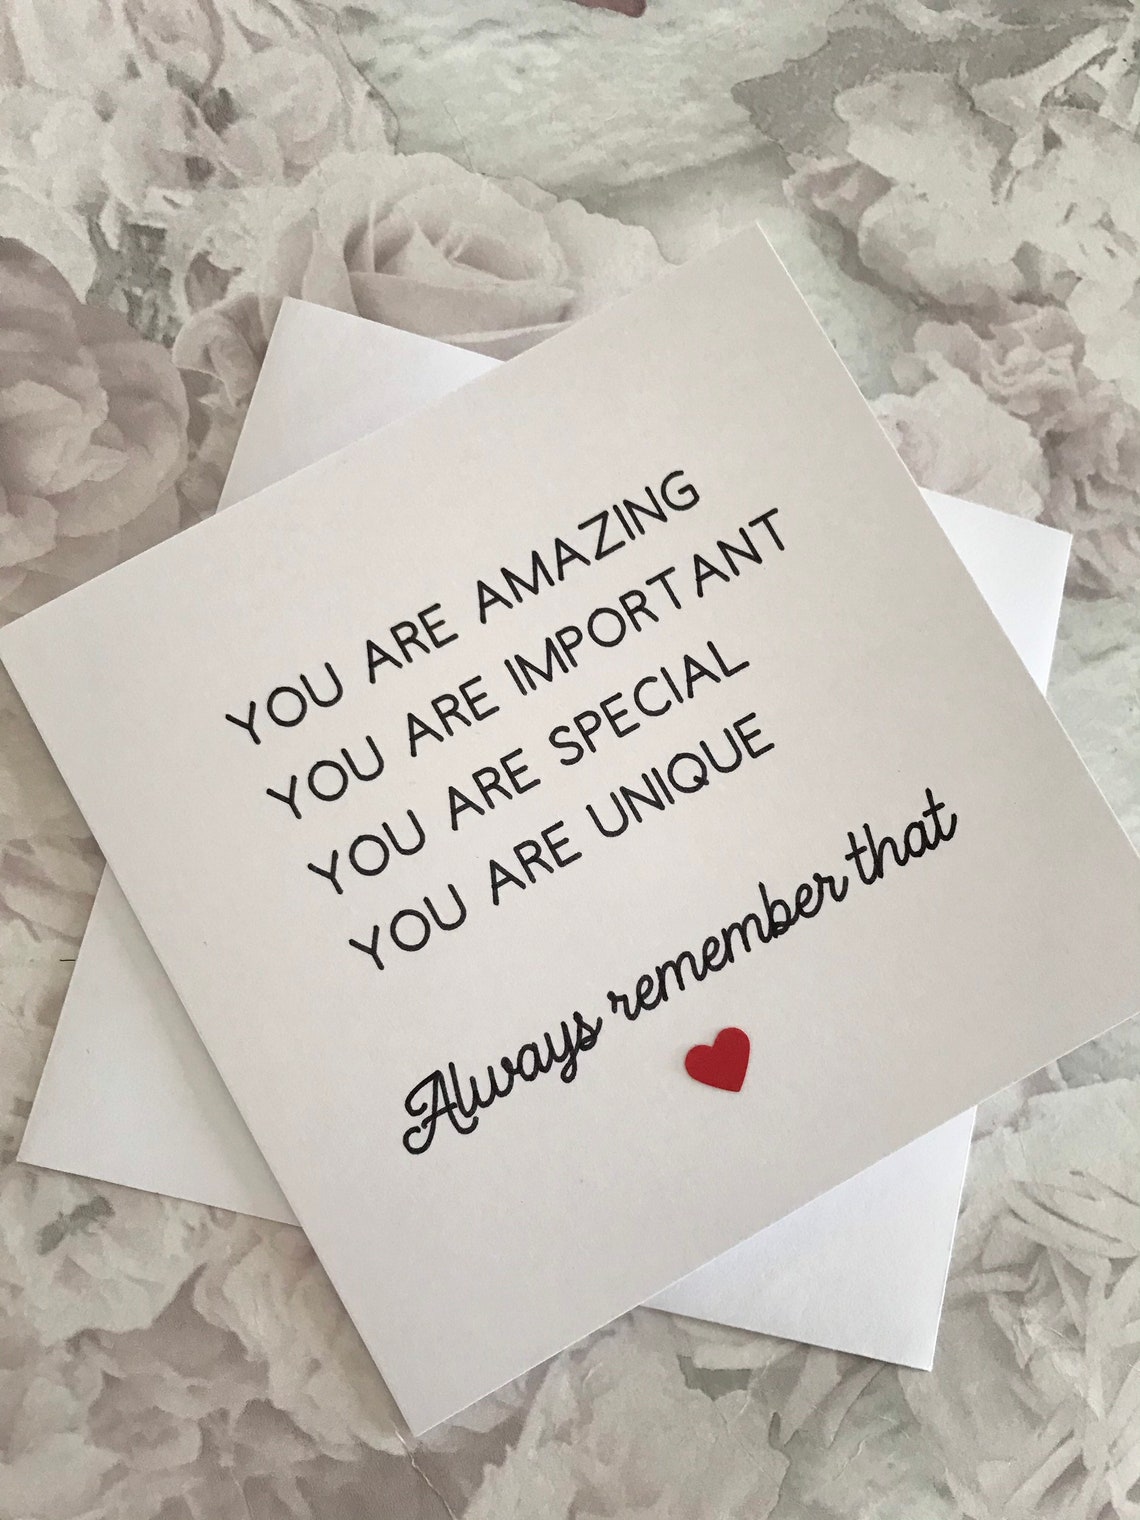 YOU ARE AMAZING
YOU ARE IMPORTANT
YOU ARE SPECIAL
YOU ARE UNIQUE
Always remember that